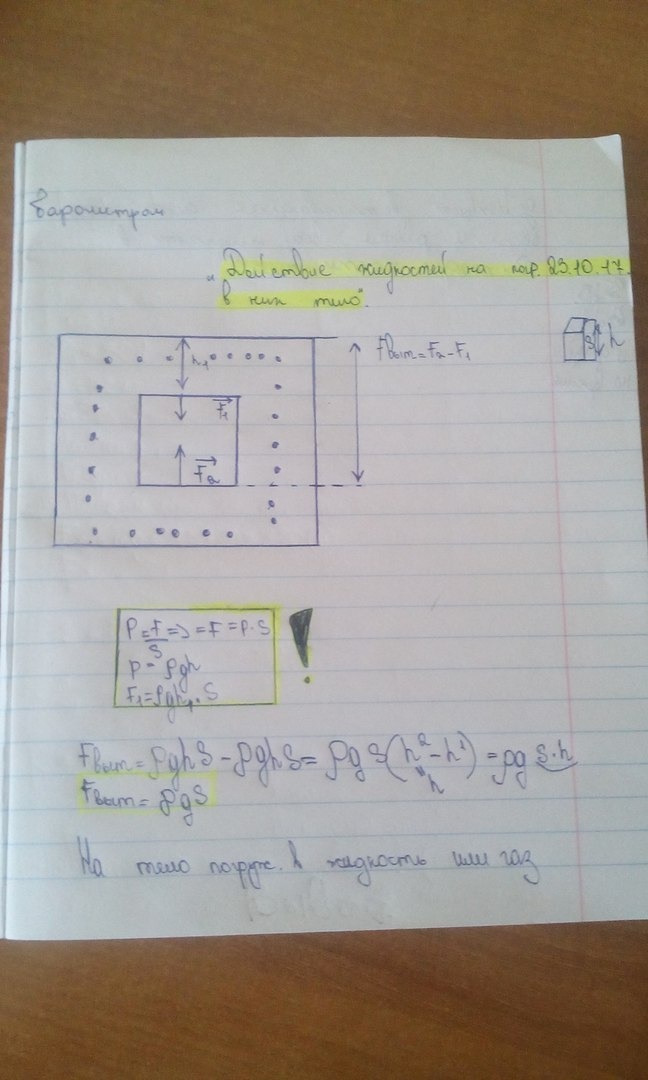 барометром
"Действие жидкостей на погр. 23.10.17.
в них тело".
h₁
F₁
F₂
Fвыт = F₂ - F₁
S h
P = F/S => = F = p·S
P = ρgh
F₁ = ρgh₁·S
!
Fвыт = ρghS - ρghS = ρgS(h² - h¹) = ρg S·h
h
Fвыт = ρgS
На тело погруж. в жидкость или газ